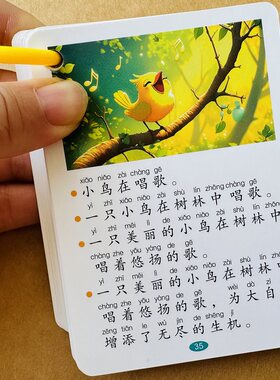 xiǎo niǎo zài chàng gē
小鸟在唱歌。
yì zhī xiǎo niǎo zài shù lín zhōng chàng gē
一只小鸟在树林中唱歌。
yì zhī měi lì de xiǎo niǎo zài shù lín
一只美丽的小鸟在树林
chàng zhe yōu yáng de gē
唱着悠扬的歌。
yì zhī měi lì de xiǎo niǎo zài shù lín
一只美丽的小鸟在树林
chàng zhe yōu yáng de gē wèi dà zì
唱着悠扬的歌，为大自
zēng tiān le wú jìn de shēng jī
增添了无尽的生机。
35